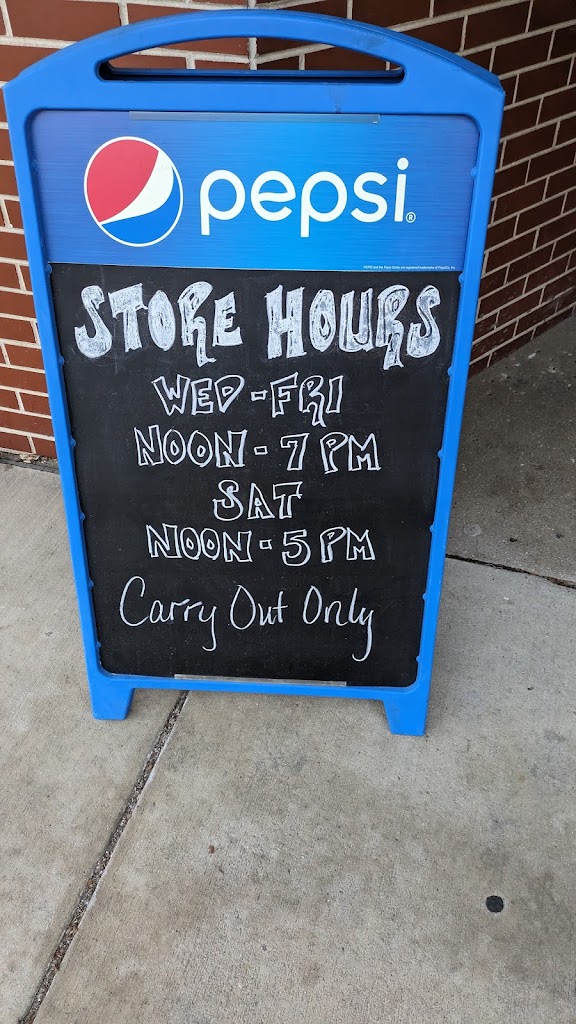 pepsi®
STORE HOURS
WED - FRI
NOON - 7 PM
SAT
NOON - 5 PM
Carry Out Only